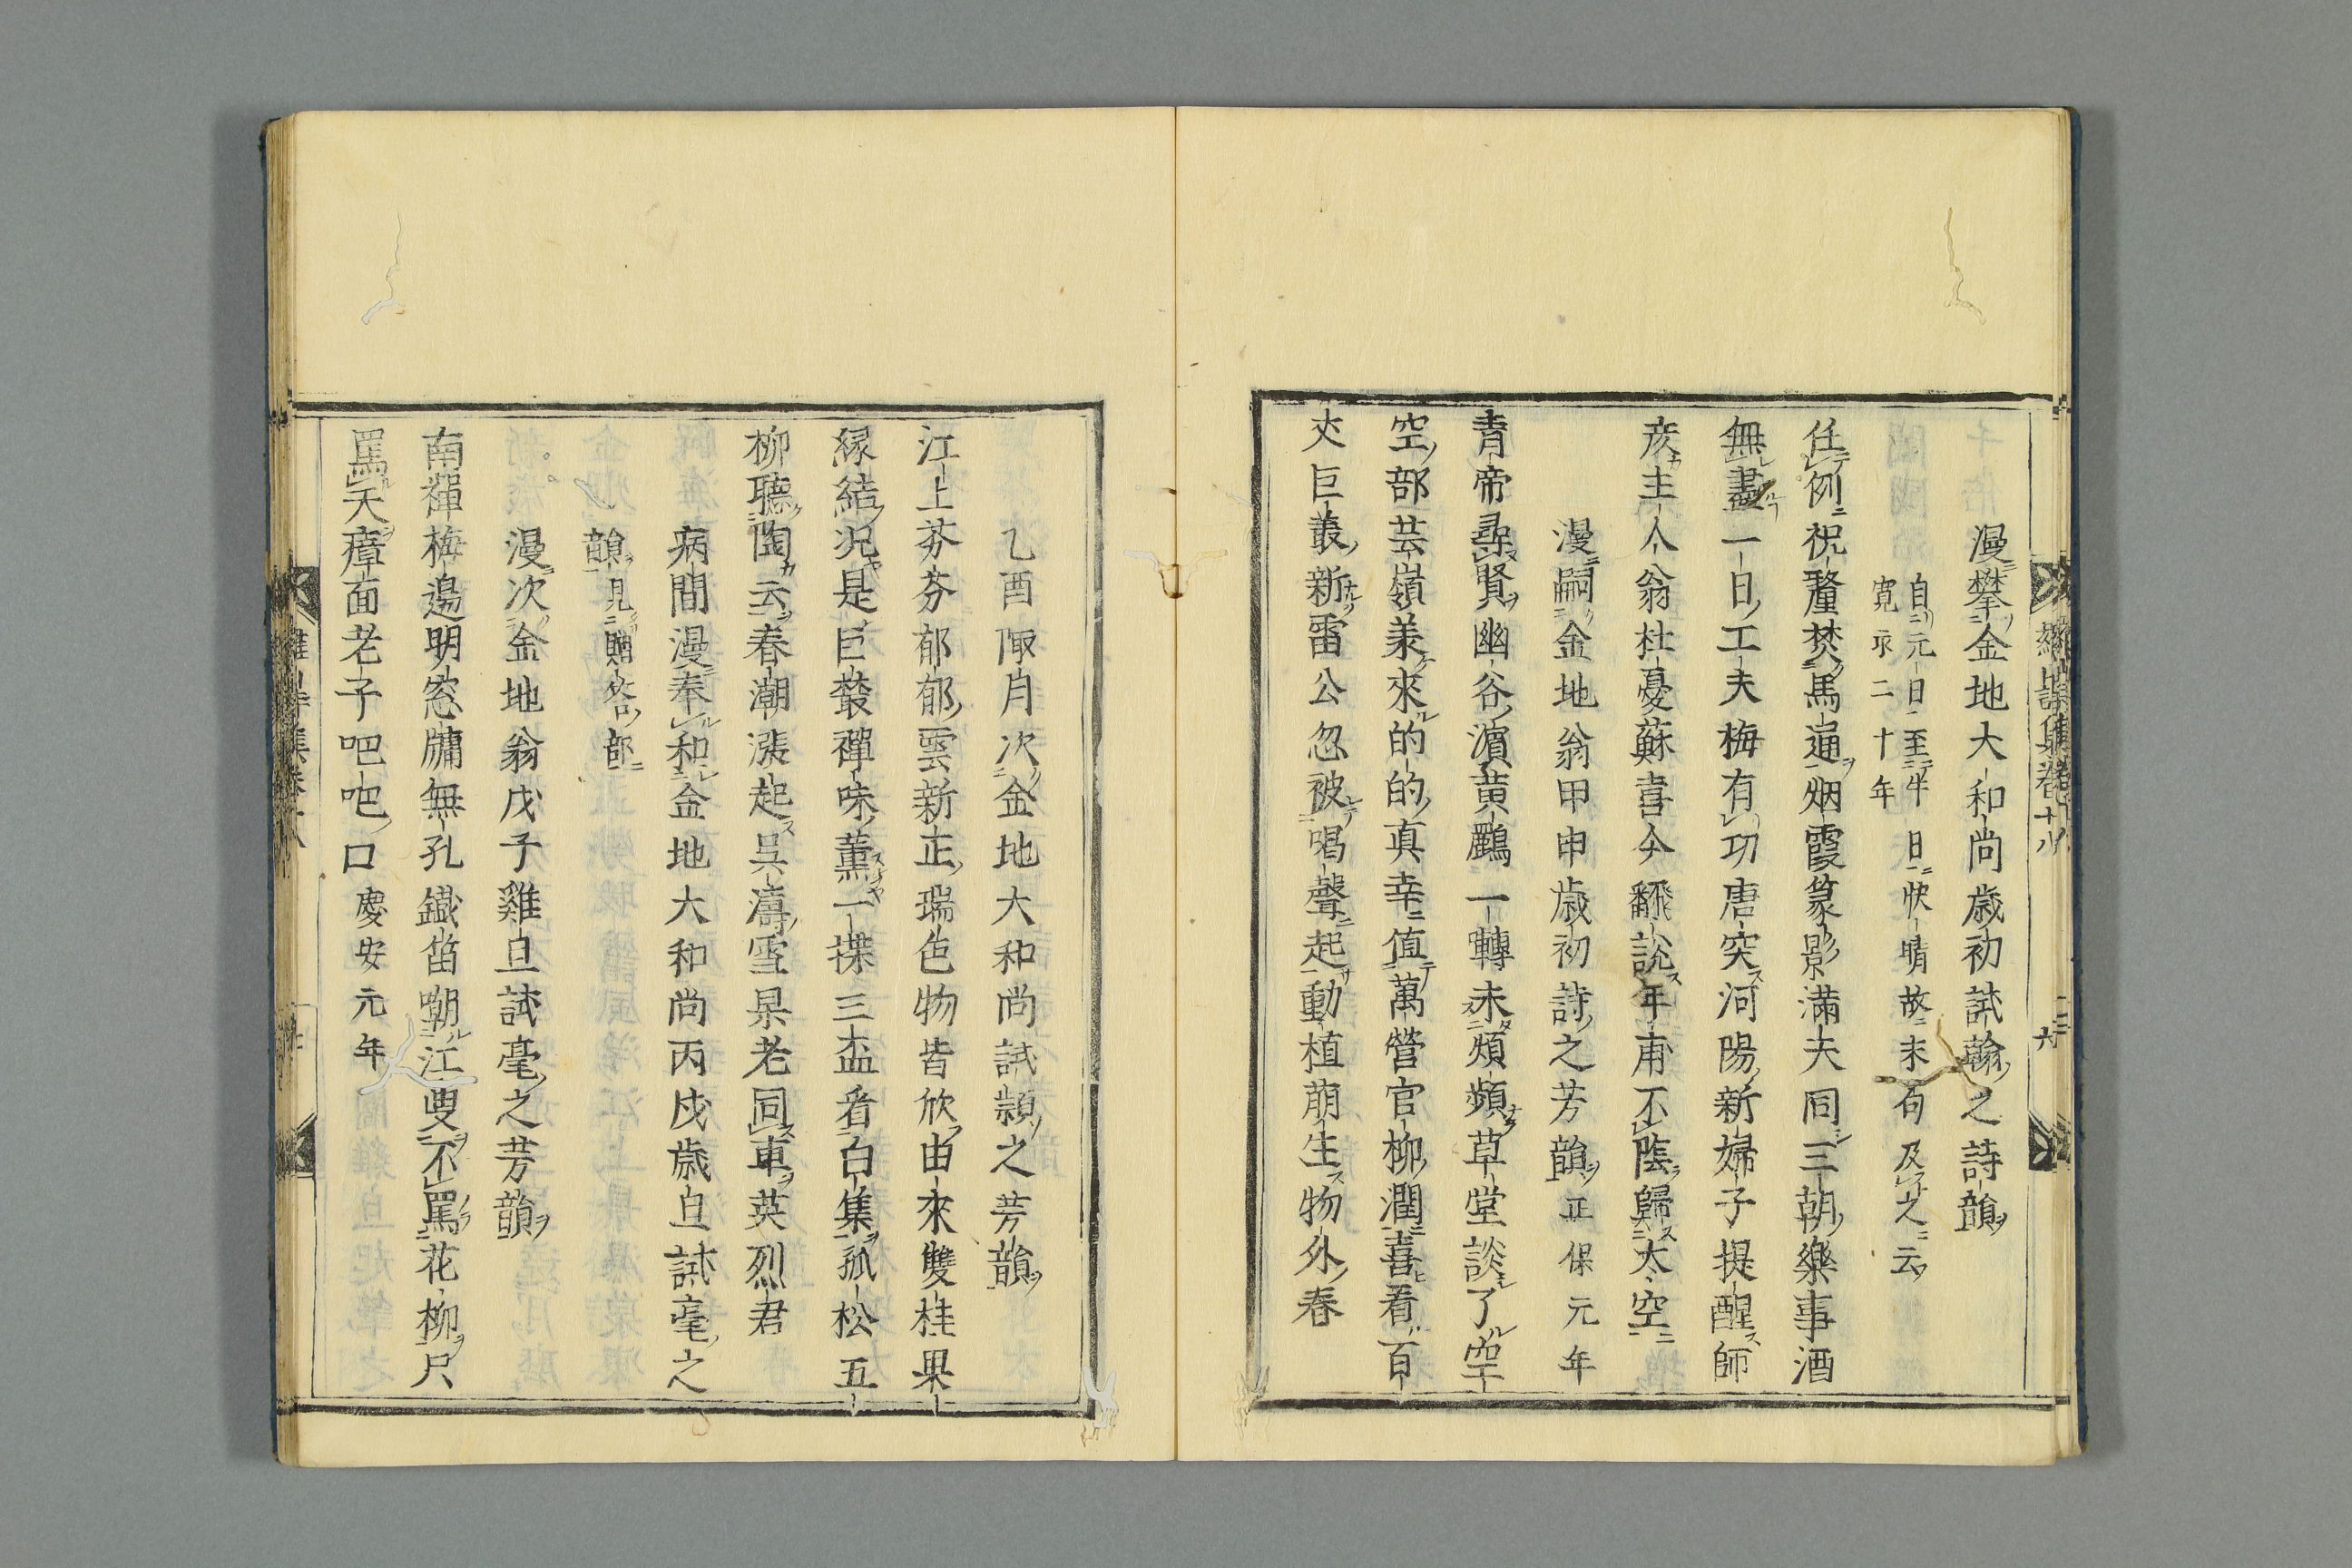 漫攀金地大和尚歳初試翰之詩韻
自元日至半日快晴故末句及之云
寛永二十年
任例祝釐焚馬通烟霞篆影滿夫同三朝樂事酒
無盡一日工夫梅有功唐突河陽新婦子提醒師
彦主人翁杜憂蘇喜今翻説年甫不陰歸太空
漫嗣金地翁甲申歳初詩之芳韻正保元年
青帝尋賢幽谷濵黄鸝一囀未頻頻草堂談了空
空部芸嶺羕來的的真幸値萬營官柳潤喜看百
丈巨叢新雷公忽被喝聲起動植萠生物外春
乙酉陬月次金地大和尚試頴之芳韻
江上芬芬郁郁雲新正瑞色物皆欣由來雙桂果
縁結況是巨叢禪味薫一搽三盃看白集孤松五
柳聽陶云春潮漲起呉濤雪杲老同車英烈君
病間漫奉和金地大和尚丙戌歳旦試毫之
韻見贈答部
漫次金地翁戊子雞旦試毫之芳韻
南禪梅邉明窓牗無孔鐵笛嘲江叟不罵花柳尺
罵天瘴面老子吧吧口慶安元年